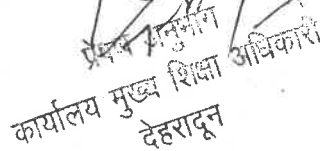 अनुभाग
कार्यालय मुख्य शिक्षा अधिकारी
देहरादून